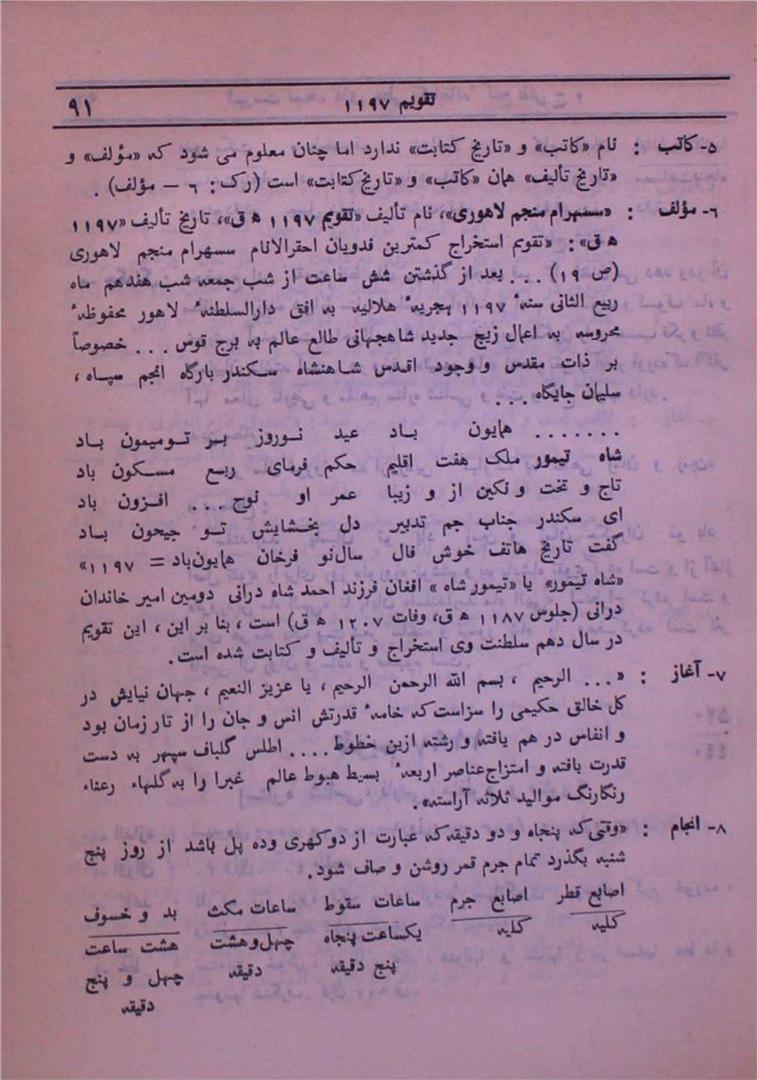 تقویم ۱۱۹۷
۹۱
۵- کاتب : نام «کاتب» و «تاریخ کتابت» ندارد اما چنان معلوم می شود که «مؤلف» و
«تاریخ تألیف» همان «کاتب» و «تاریخ کتابت» است (رک : ۶ – مؤلف) .
۶- مؤلف : «سسهرام منجم لاهوری»، نام تألیف «تقویم ۱۱۹۷ ه ق»، تاریخ تألیف «۱۱۹۷
ه ق» : «تقویم استخراج کمترین فدویان احقرالانام سسهرام منجم لاهوری
(ص ۱۹) ... بعد از گذشتن شش ساعت از شب جمعه شب هفدهم ماه
ربیع الثانی سنهٔ ۱۱۹۷ هجریهٔ هلالیه به افق دارالسلطنهٔ لاهور محفوظهٔ
محروسه به اعمال زیج جدید شاهجهانی طالع عالم به برج قوس ... خصوصاً
بر ذات مقدس و وجود اقدس شاهنشاه سکندر بارگاه انجم سپاه ،
سلیمان جایگاه ...
....... همایون باد عید نوروز بر تومیمون باد
شاه تیمور ملک هفت اقلیم حکم فرمای ربع مسکون باد
تاج و تخت و نگین از و زیبا عمر او نوح ... افزون باد
ای سکندر جناب جم تدبیر دل بخشایش تو جیحون باد
گفت تاریخ هاتف خوش فال سال نو فرخان همایون باد = ۱۱۹۷»
«شاه تیمور» یا «تیمور شاه» افغان فرزند احمد شاه درانی دومین امیر خاندان
درانی (جلوس ۱۱۸۷ ه ق، وفات ۱۲۰۷ ه ق) است ، بنا بر این ، این تقویم
در سال دهم سلطنت وی استخراج و تألیف و کتابت شده است .
۷- آغاز : «... الرحیم ، بسم الله الرحمن الرحیم ، یا عزیز النعیم ، جهان نیایش در
کل خالق حکیمی را سزاست که خامهٔ قدرتش انس و جان را از تار زمان بود
و انفاس در هم یافته و رشته ازین خطوط .... اطلس گلباف سپهر به دست
قدرت بافته و امتزاج عناصر اربعهٔ بسیط هبوط عالم غبرا را به گلهاء رعناء
رنگارنگ موالید ثلاثه آراسته» .
۸- انجام : «وقتی که پنجاه و دو دقیقه که عبارت از دو کهری وده پل باشد از روز پنج
شنبه بگذرد تمام جرم قمر روشن و صاف شود .
اصابع قطر اصابع جرم ساعات سقوط ساعات مکث بد و خسوف
کلیه کلیه یکساعت پنجاه چهل و هشت هشت ساعت
پنج دقیقه دقیقه چهل و پنج
دقیقه